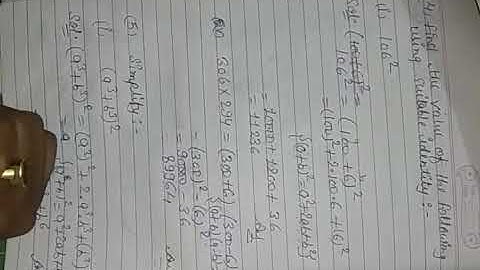 4. Find the value of the following
using suitable identity:-
(i) 106²
Sol:- 106² = (100+6)²
= (100)² + 2·100·6 + (6)²
{(a+b)² = a²+2ab+b²}
= 10000 + 1200 + 36
= 11236
306 × 294 = (300+6) (300-6)
{(a+b)(a-b)
= (300)² - (6)²
= 90000 - 36
89964
(5) Simplify:-
(i) (a³+b³)²
Sol:- (a³+b³)² = (a³)² + 2·a³·b³ + (b³)²